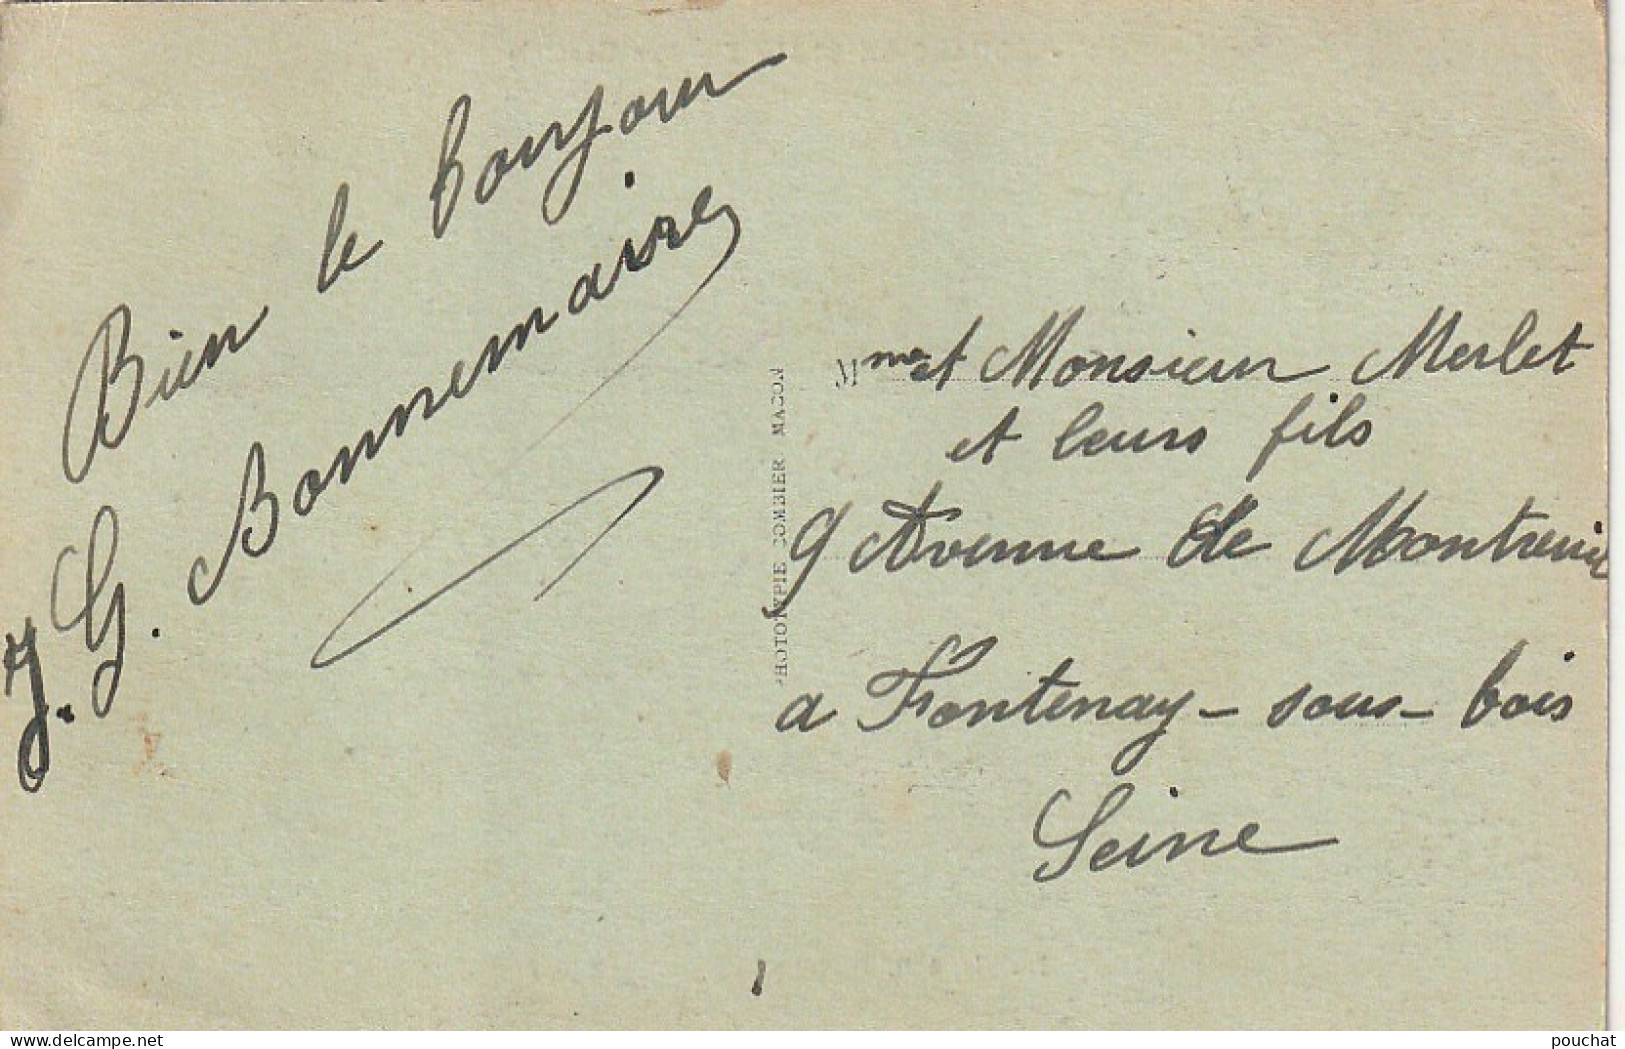 Bien le bonjour
J. G. Bonnemaire
PHOTOTYPIE COMBIER MACON
Mme et Monsieur Merlet
et leurs fils
9 Avenue de Montreuil
a Fontenay - sous - bois
Seine
delcampe.net
pouchat